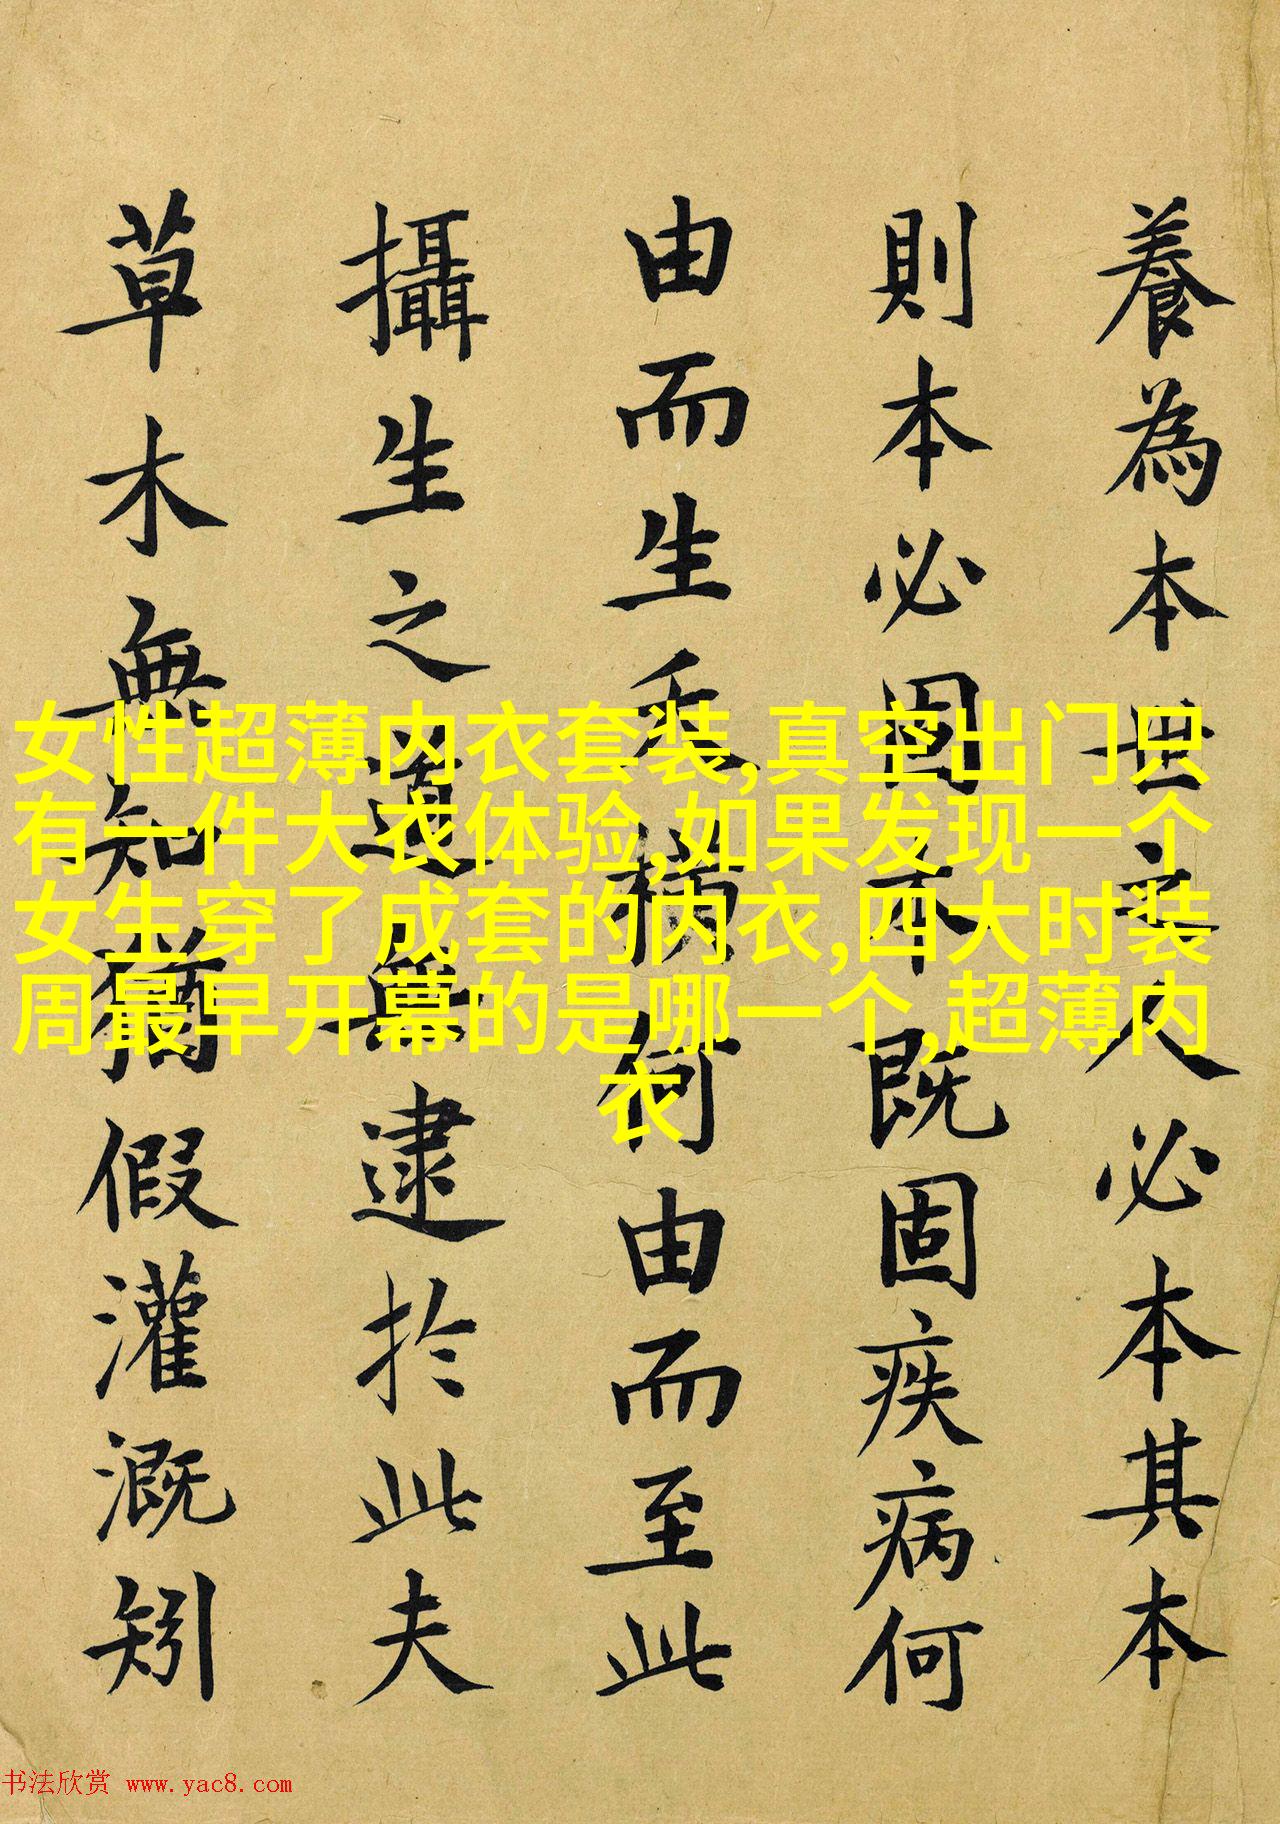 養為本世之人必本其本
則本必固本既固疾病何
由而生夭橫何由而至此
攝生之道無逮於此夫
草木無知猶假灌溉矧
女性超薄内衣套装,真空出门只
有一件大衣体验,如果发现一个
女生穿了成套的内衣,四大时装
周最早开幕的是哪一个,超薄内
衣
书法欣赏 www.yac8.com